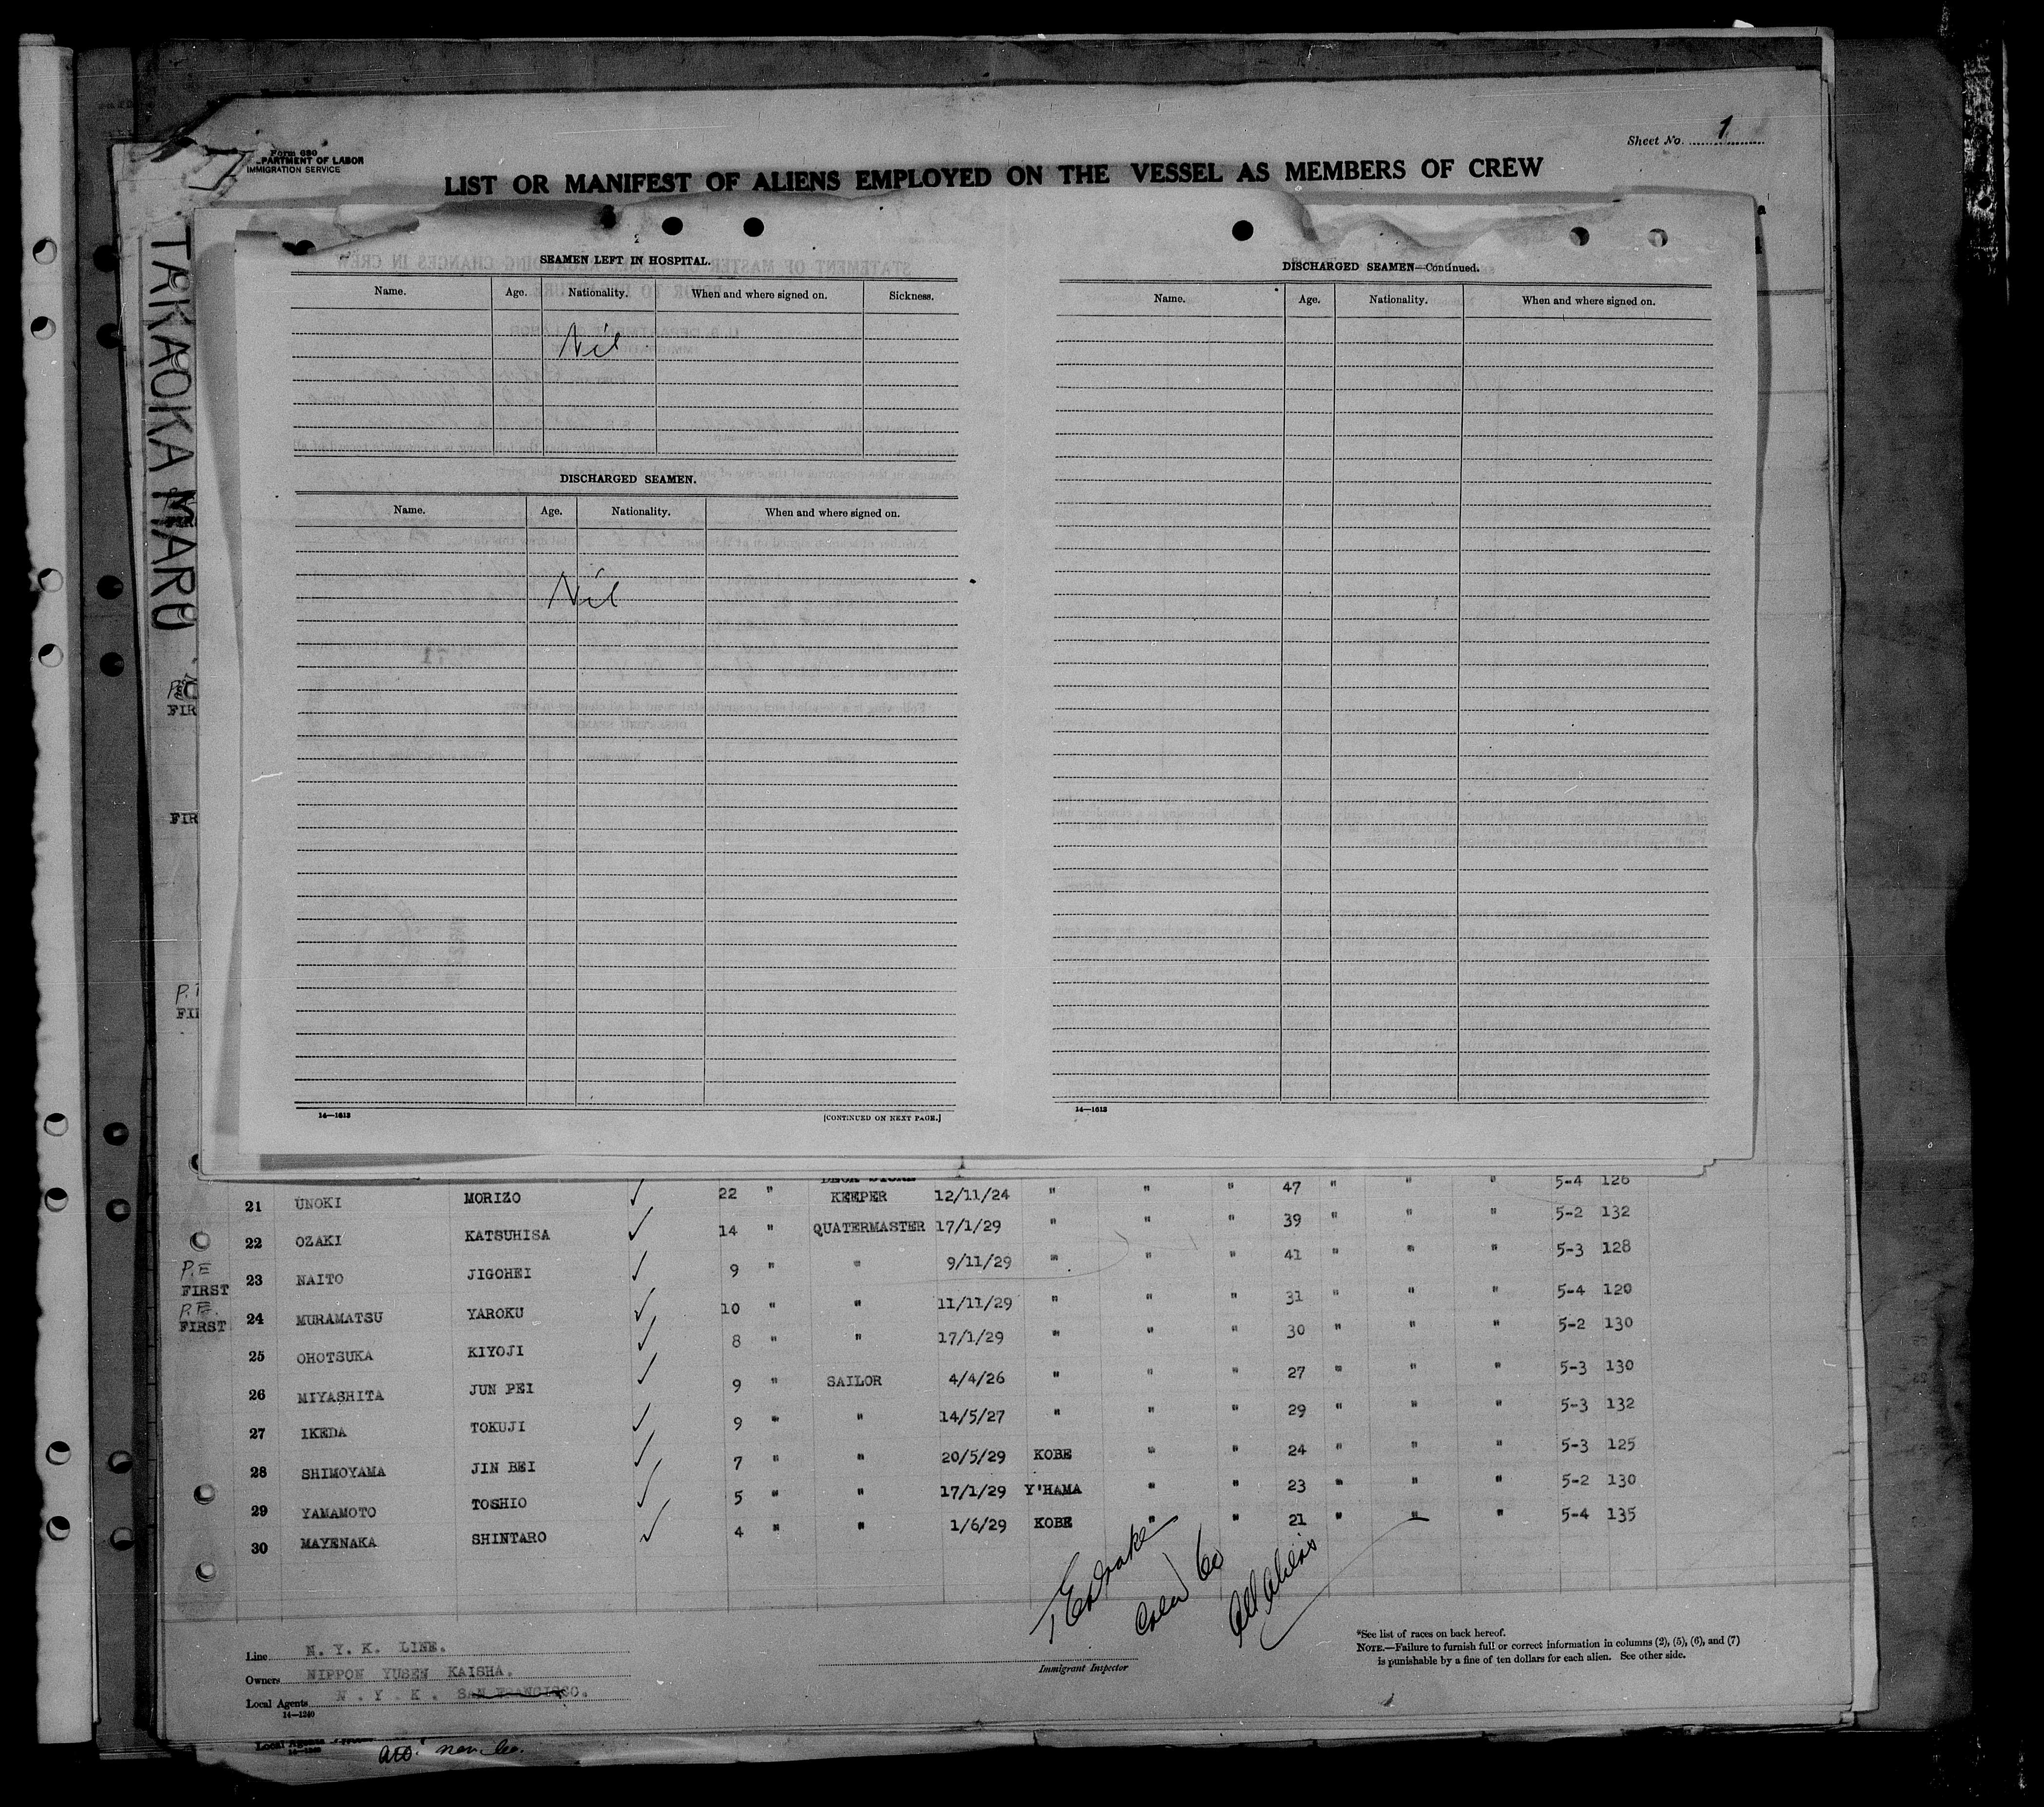 Sheet No. 1
Form 680
DEPARTMENT OF LABOR
IMMIGRATION SERVICE
LIST OR MANIFEST OF ALIENS EMPLOYED ON THE VESSEL AS MEMBERS OF CREW
TAKAOKA MARU
SEAMEN LEFT IN HOSPITAL.
Name. Age. Nationality. When and where signed on. Sickness.
Nil
DISCHARGED SEAMEN.
Name. Age. Nationality. When and where signed on.
Nil
14—1613 [CONTINUED ON NEXT PAGE.]
DISCHARGED SEAMEN—Continued.
Name. Age. Nationality. When and where signed on.
14—1613
FIR
FIR
P.
21 UNOKI MORIZO ✓ 22 " KEEPER 12/11/24 " " " 47 " " " 5-4 126
22 OZAKI KATSUHISA ✓ 14 " QUATERMASTER 17/1/29 " " " 39 " " " 5-2 132
P.E
FIRST 23 NAITO JIGOHEI ✓ 9 " " 9/11/29 " " " 41 " " " 5-3 128
P.E.
FIRST 24 MURAMATSU YAROKU ✓ 10 " " 11/11/29 " " " 31 " " " 5-4 120
25 OHOTSUKA KIYOJI ✓ 8 " " 17/1/29 " " " 30 " " " 5-2 130
26 MIYASHITA JUN PEI ✓ 9 " SAILOR 4/4/26 " " " 27 " " " 5-3 130
27 IKEDA TOKUJI ✓ 9 " " 14/5/27 " " " 29 " " " 5-3 132
28 SHIMOYAMA JIN BEI ✓ 7 " " 20/5/29 KOBE " " 24 " " " 5-3 125
29 YAMAMOTO TOSHIO ✓ 5 " " 17/1/29 Y'HAMA " " 23 " " " 5-2 130
30 MAYENAKA SHINTARO ✓ 4 " " 1/6/29 KOBE " " 21 " " " 5-4 135
All Aliens
Line N. Y. K. LINE.
Owners NIPPON YUSEN KAISHA.
Local Agents N. Y. K. SAN FRANCISCO.
14—1240
Immigrant Inspector
*See list of races on back hereof.
NOTE.—Failure to furnish full or correct information in columns (2), (5), (6), and (7)
is punishable by a fine of ten dollars for each alien. See other side.
Local Agents